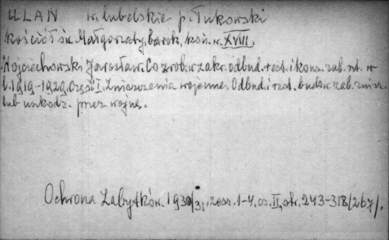 ULAN w. lubelskie p. Łukowski
Kościół św. Małgorzaty, barok, kon. w. XVIII.
Wojciechowski Jarosław. Co zrob. w zakr. odbud. rest. i kons. zab. szt. w
l. 1919-1929. Część I. Zniszczenia wojenne. Odbud. i rest. budow. zab. znisz.
lub uszkodz. przez wojnę.
Ochrona Zabytków. 1930/31, zesz. 1-4, cz. II, str. 243-318/267/.